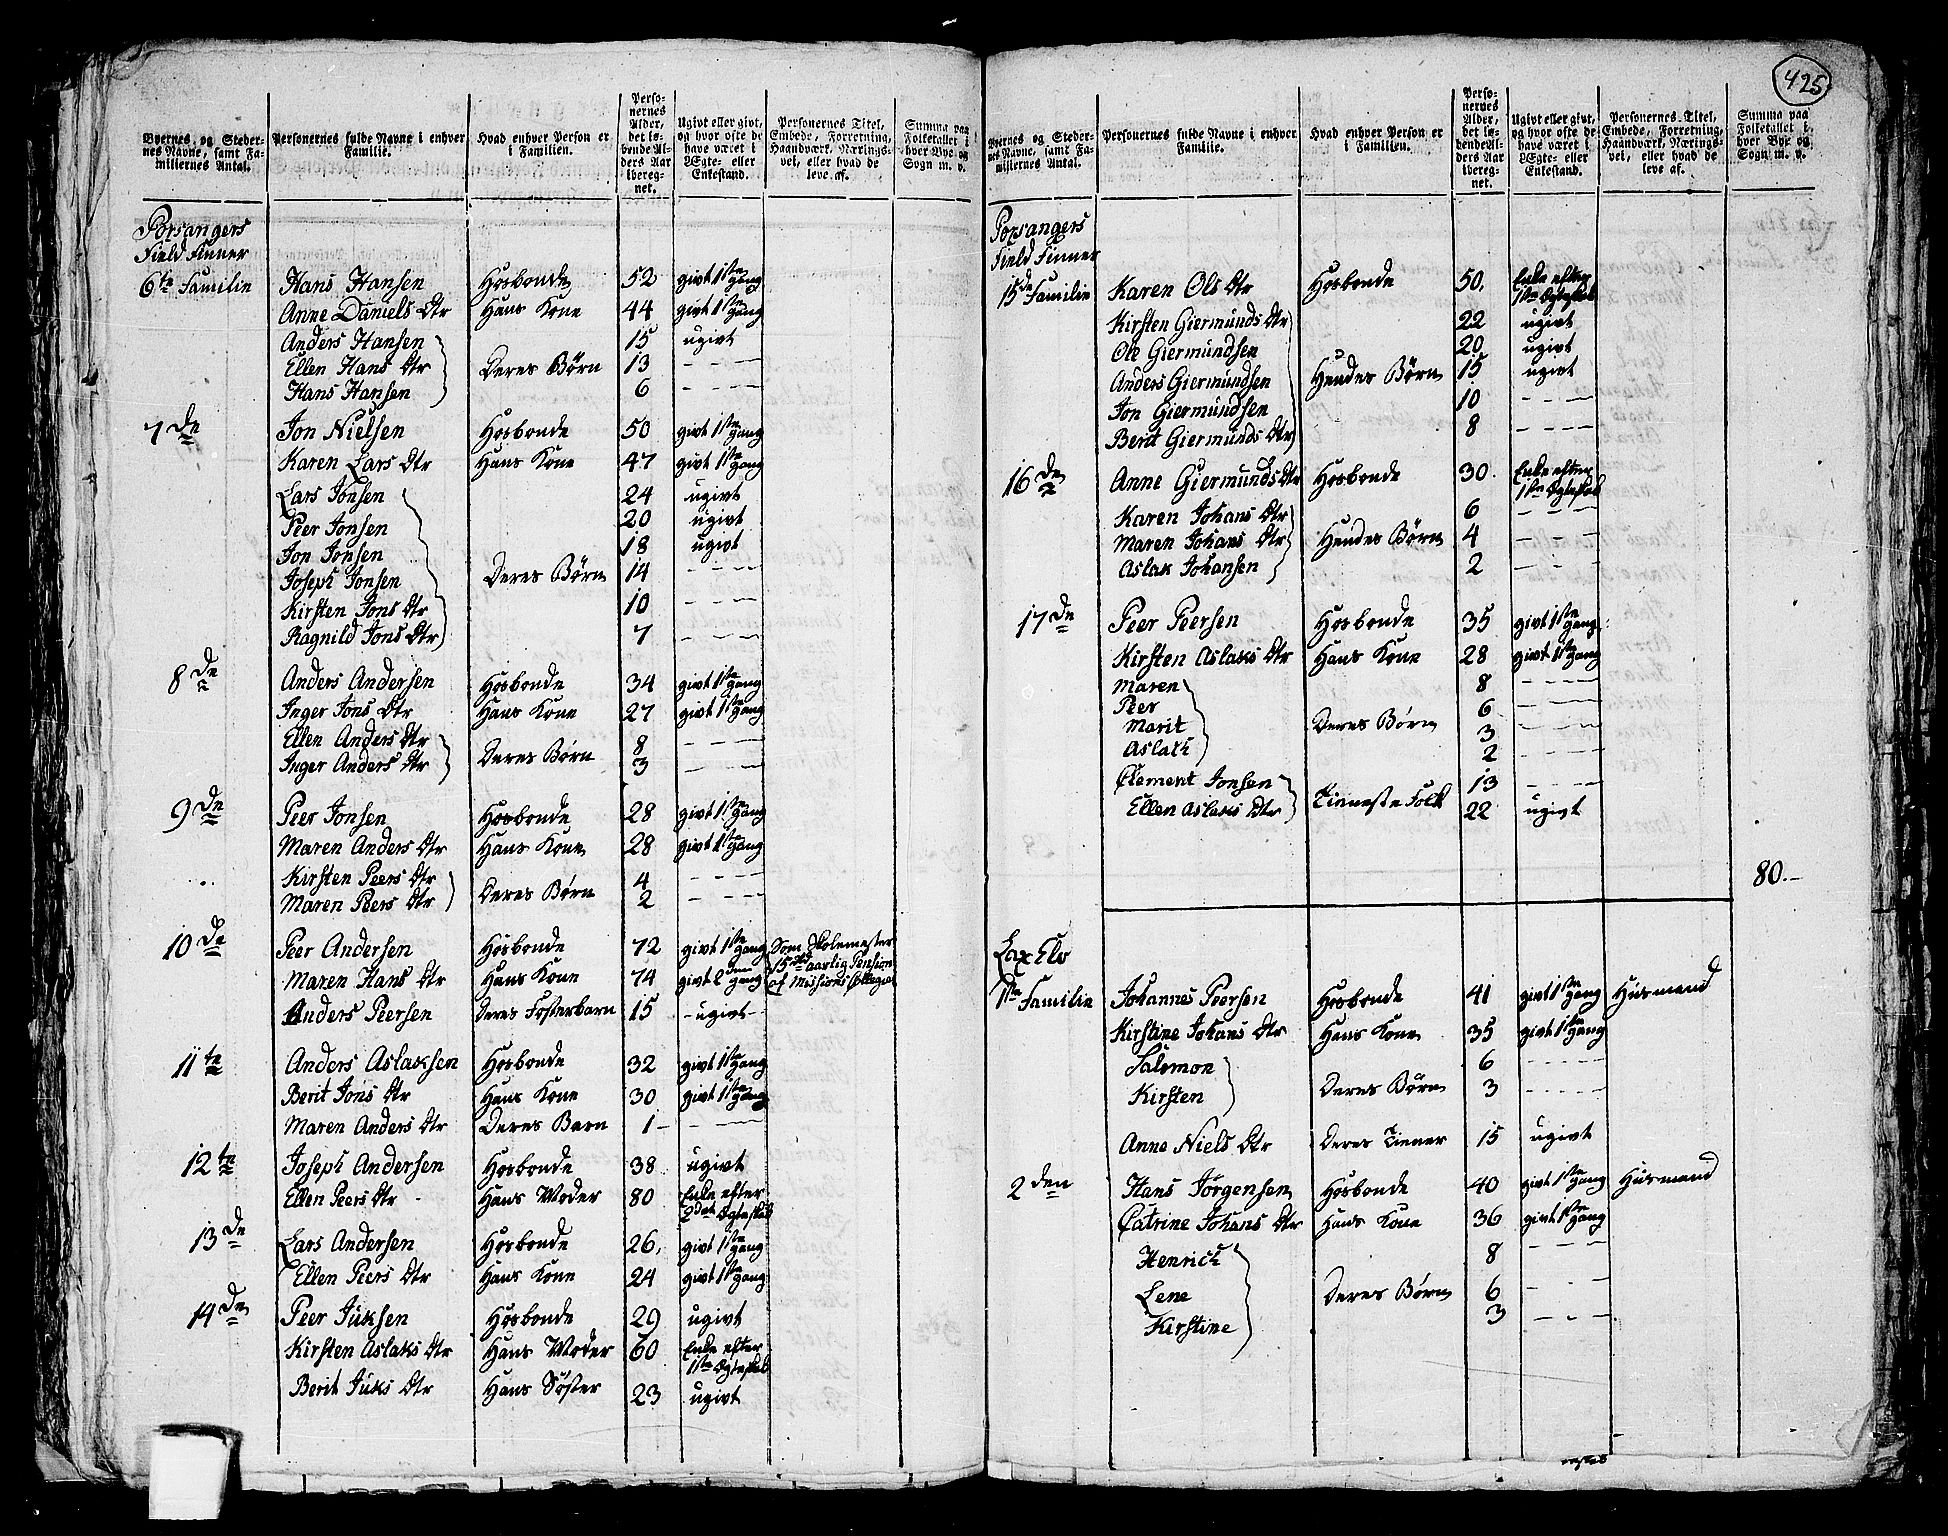 425
Byernes og Steder-nes Navne, samt Fa-miliernes Antal. Personernes fulde Navne i enhver Familie. Hvad enhver Person er i Familien. Perso-nernes Alder, det lø-bende Al-ders Aar iberegnet. Ugivt eller givt, og hvor ofte de have været i Ægte- eller Enkestand. Personernes Titel, Embede, Forretning, Haandværk, Nærings-vei, eller hvad de leve af. Summa paa Folketallet i hver Bye og Sogn m. v.
Porsangers
Field Finner
6te Familie Hans Hansen Hosbonde 52 givt 1ste gang
Anne Daniels Dtr Hans Kone 44 givt 1ste gang
Anders Hansen 15 ugivt
Ellen Hans Dtr Deres Børn 13 - - -
Hans Hansen 6 - - -
7de Jon Nielsen Hosbonde 50 givt 1ste gang
Karen Lars Dtr Hans Kone 47 givt 1ste gang
Lars Jonsen 24 ugivt
Peer Jonsen 20 ugivt
Jon Jonsen 18 ugivt
Joseph Jonsen Deres Børn 14 - - -
Kirsten Jons Dtr 10 - - -
Ragnild Jons Dtr 7 - - -
8de Anders Andersen Hosbonde 34 givt 1ste gang
Inger Jons Dtr Hans Kone 27 givt 1ste gang
Ellen Anders Dtr 8 - - -
Inger Anders Dtr Deres Børn 3 - - -
9de Peer Jonsen Hosbonde 28 givt 1ste gang
Maren Anders Dtr Hans Kone 28 givt 1ste gang
Kirsten Peers Dtr 4 - - -
Maren Peers Dtr Deres Børn 2 - - -
10de Peer Andersen Hosbonde 72 givt 1ste gang Som Skolemester
Maren Hans Dtr Hans Kone 74 givt 2den gang 15 aarlig Pension af Missions Collegiet
Anders Peersen Deres Fosterbarn 15 - ugivt -
11te Anders Aslaksen Hosbonde 32 givt 1ste gang
Berit Jons Dtr Hans Kone 30 givt 1ste gang
Maren Anders Dtr Deres Barn 1 - - - -
12te Joseph Andersen Hosbonde 38 ugivt
Ellen Peers Dtr Hans Moder 80 Enke efter 2det Ægteskab
13de Lars Andersen Hosbonde 26. givt 1ste gang
Ellen Peers Dtr Hans Kone 24 givt 1ste gang
14de Peer Juksen Hosbonde 29 ugivt
Kirsten Aslaks Dtr Hans Moder 60 Enke efter 1ste Ægteskab
Berit Juks Dtr Hans Søster 23 ugivt
Byernes og Steder-nes Navne, samt Fa-miliernes Antal. Personernes fulde Navne i enhver Familie. Hvad enhver Person er i Familien. Perso-nernes Alder, det lø-bende Al-ders Aar iberegnet. Ugivt eller givt, og hvor ofte de have været i Ægte- eller Enkestand. Personernes Titel, Embede, Forretning, Haandværk, Nærings-vei, eller hvad de leve af. Summa paa Folketallet i hver Bye og Sogn m. v.
Porsangers
Field Finner
15de Familie Karen Ols Dtr Hosbonde 50. Enke efter 1ste Ægteskab
Kirsten Giermunds Dtr 22 ugivt
Ole Giermundsen 20 ugivt
Anders Giermundsen Hendes Børn 15 ugivt
Jon Giermundsen 10 - - -
Berit Giermunds Dtr 8 - - -
16de Anne Giermunds Dtr Hosbonde 30. Enke efter 1ste Ægteskab
Karen Johans Dtr 6 - - -
Maren Johans Dtr Hendes Børn 4 - - -
Aslak Johansen 2 - - -
17de Peer Peersen Hosbonde 35 givt 1ste gang
Kirsten Aslaks Dtr Hans Kone 28 givt 1ste gang
Maren 8 - - -
Peer 6 - - -
Marit Deres Børn 3 - - -
Aslak 2 - - -
Clement Jonsen 13 - - -
Ellen Aslaks Dtr Tieneste Folk 22 ugivt
80.-
Lax Elv
1ste Familie Johannes Peersen Hosbonde 41 givt 1ste gang Husmand
Kirstine Johans Dtr Hans Kone 35 givt 1ste gang
Salomon 6 - - -
Kirsten Deres Børn 3 - - -
Anne Niels Dtr Deres Tiener 15 ugivt
2den Hans Jørgensen Hosbonde 40 givt 1ste gang Husmand
Catrine Johans Dtr Hans Kone 36 givt 1ste gang
Henrich 8 - - -
Lene Deres Børn 6 - -
Kirstine 3 - - -